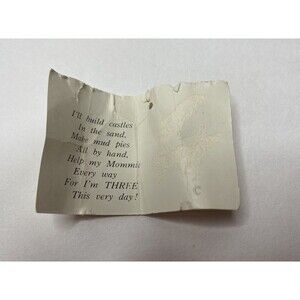 I'll build castles
In the sand,
Make mud pies
All by hand,
Help my Mommie
Every way
For I'm THREE
This very day!